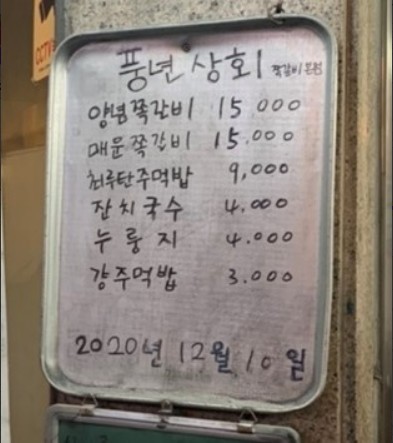 CCTV
풍년상회 쪽갈비본점
양념쪽갈비 15.000
매운쪽갈비 15.000
최루탄주먹밥 9,000
잔치국수 4.000
누룽지 4.000
걍주먹밥 3.000
2020년 12월 10일